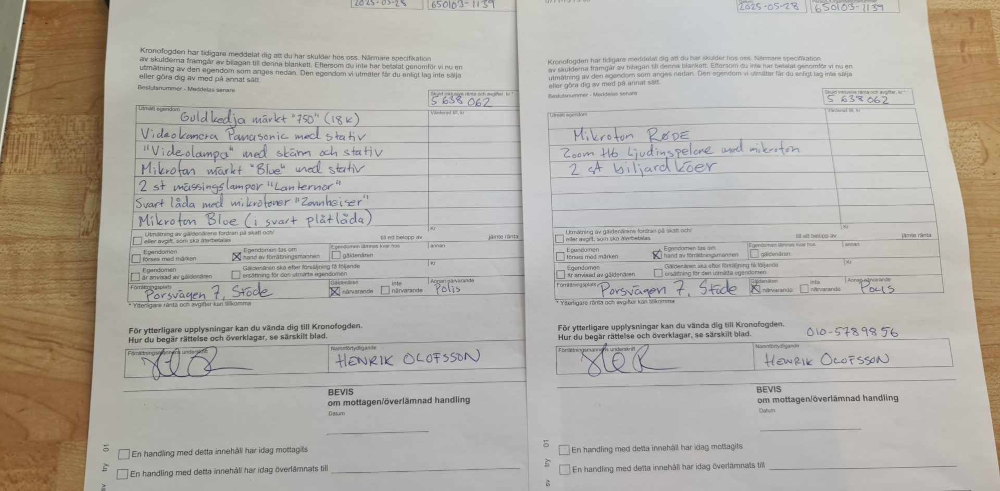 2025-05-28
650103-1139
Kronofogden har tidigare meddelat dig att du har skulder hos oss. Närmare specifikation
av skulderna framgår av bilagan till denna blankett. Eftersom du inte har betalat genomför vi nu en
utmätning av den egendom som anges nedan. Den egendom vi utmäter får du enligt lag inte sälja
eller göra dig av med på annat sätt.
Beslutsnummer - Meddelas senare
Skuld inklusive ränta och avgifter, kr *
5 638 062
Utmätt egendom
Värderad till, kr
Guldkedja märkt "750" (18K)
Videokamera Panasonic med stativ
"Videolampa" med skärm och stativ
Mikrofon märkt "Blue" med stativ
2 st mässingslampor "Lanternor"
Svart låda med mikrofoner "Zennheiser"
Mikrofon Blue (i svart plåtlåda)
Utmätning av gäldenärens fordran på skatt och/
eller avgift, som ska återbetalas
till ett belopp av
Kr
jämte ränta
Egendomen
förses med märken
Egendomen tas om
hand av förrättningsmannen
Egendomen lämnas kvar hos
gäldenären
annan
Egendomen
är anvisad av gäldenären
Gäldenären ska efter försäljning få följande
ersättning för den utmätta egendomen
Kr
Förrättningsplats
Porsvägen 7, Stöde
Gäldenären
närvarande
inte
närvarande
Annan närvarande
Polis
* Ytterligare ränta och avgifter kan tillkomma
För ytterligare upplysningar kan du vända dig till Kronofogden.
Hur du begär rättelse och överklagar, se särskilt blad.
Förrättningsmannens underskrift
Namnförtydligande
HENRIK OLOFSSON
BEVIS
om mottagen/överlämnad handling
Datum
En handling med detta innehåll har idag mottagits
En handling med detta innehåll har idag överlämnats till
sv try 01
2025-05-28
650103-1139
Kronofogden har tidigare meddelat dig att du har skulder hos oss. Närmare specifikation
av skulderna framgår av bilagan till denna blankett. Eftersom du inte har betalat genomför vi nu en
utmätning av den egendom som anges nedan. Den egendom vi utmäter får du enligt lag inte sälja
eller göra dig av med på annat sätt.
Beslutsnummer - Meddelas senare
Skuld inklusive ränta och avgifter, kr *
5 638 062
Utmätt egendom
Värderad till, kr
Mikrofon RØDE
Zoom H6 Ljudinspelare med mikrofon
2 st biljardköer
Utmätning av gäldenärens fordran på skatt och/
eller avgift, som ska återbetalas
till ett belopp av
Kr
jämte ränta
Egendomen
förses med märken
Egendomen tas om
hand av förrättningsmannen
Egendomen lämnas kvar hos
gäldenären
annan
Egendomen
är anvisad av gäldenären
Gäldenären ska efter försäljning få följande
ersättning för den utmätta egendomen
Kr
Förrättningsplats
Porsvägen 7, Stöde
Gäldenären
närvarande
Inte
närvarande
Annan närvarande
Polis
* Ytterligare ränta och avgifter kan tillkomma
För ytterligare upplysningar kan du vända dig till Kronofogden.
Hur du begär rättelse och överklagar, se särskilt blad.
010-5789856
Förrättningsmannens underskrift
Namnförtydligande
HENRIK OLOFSSON
BEVIS
om mottagen/överlämnad handling
Datum
En handling med detta innehåll har idag mottagits
En handling med detta innehåll har idag överlämnats till
sv try 01